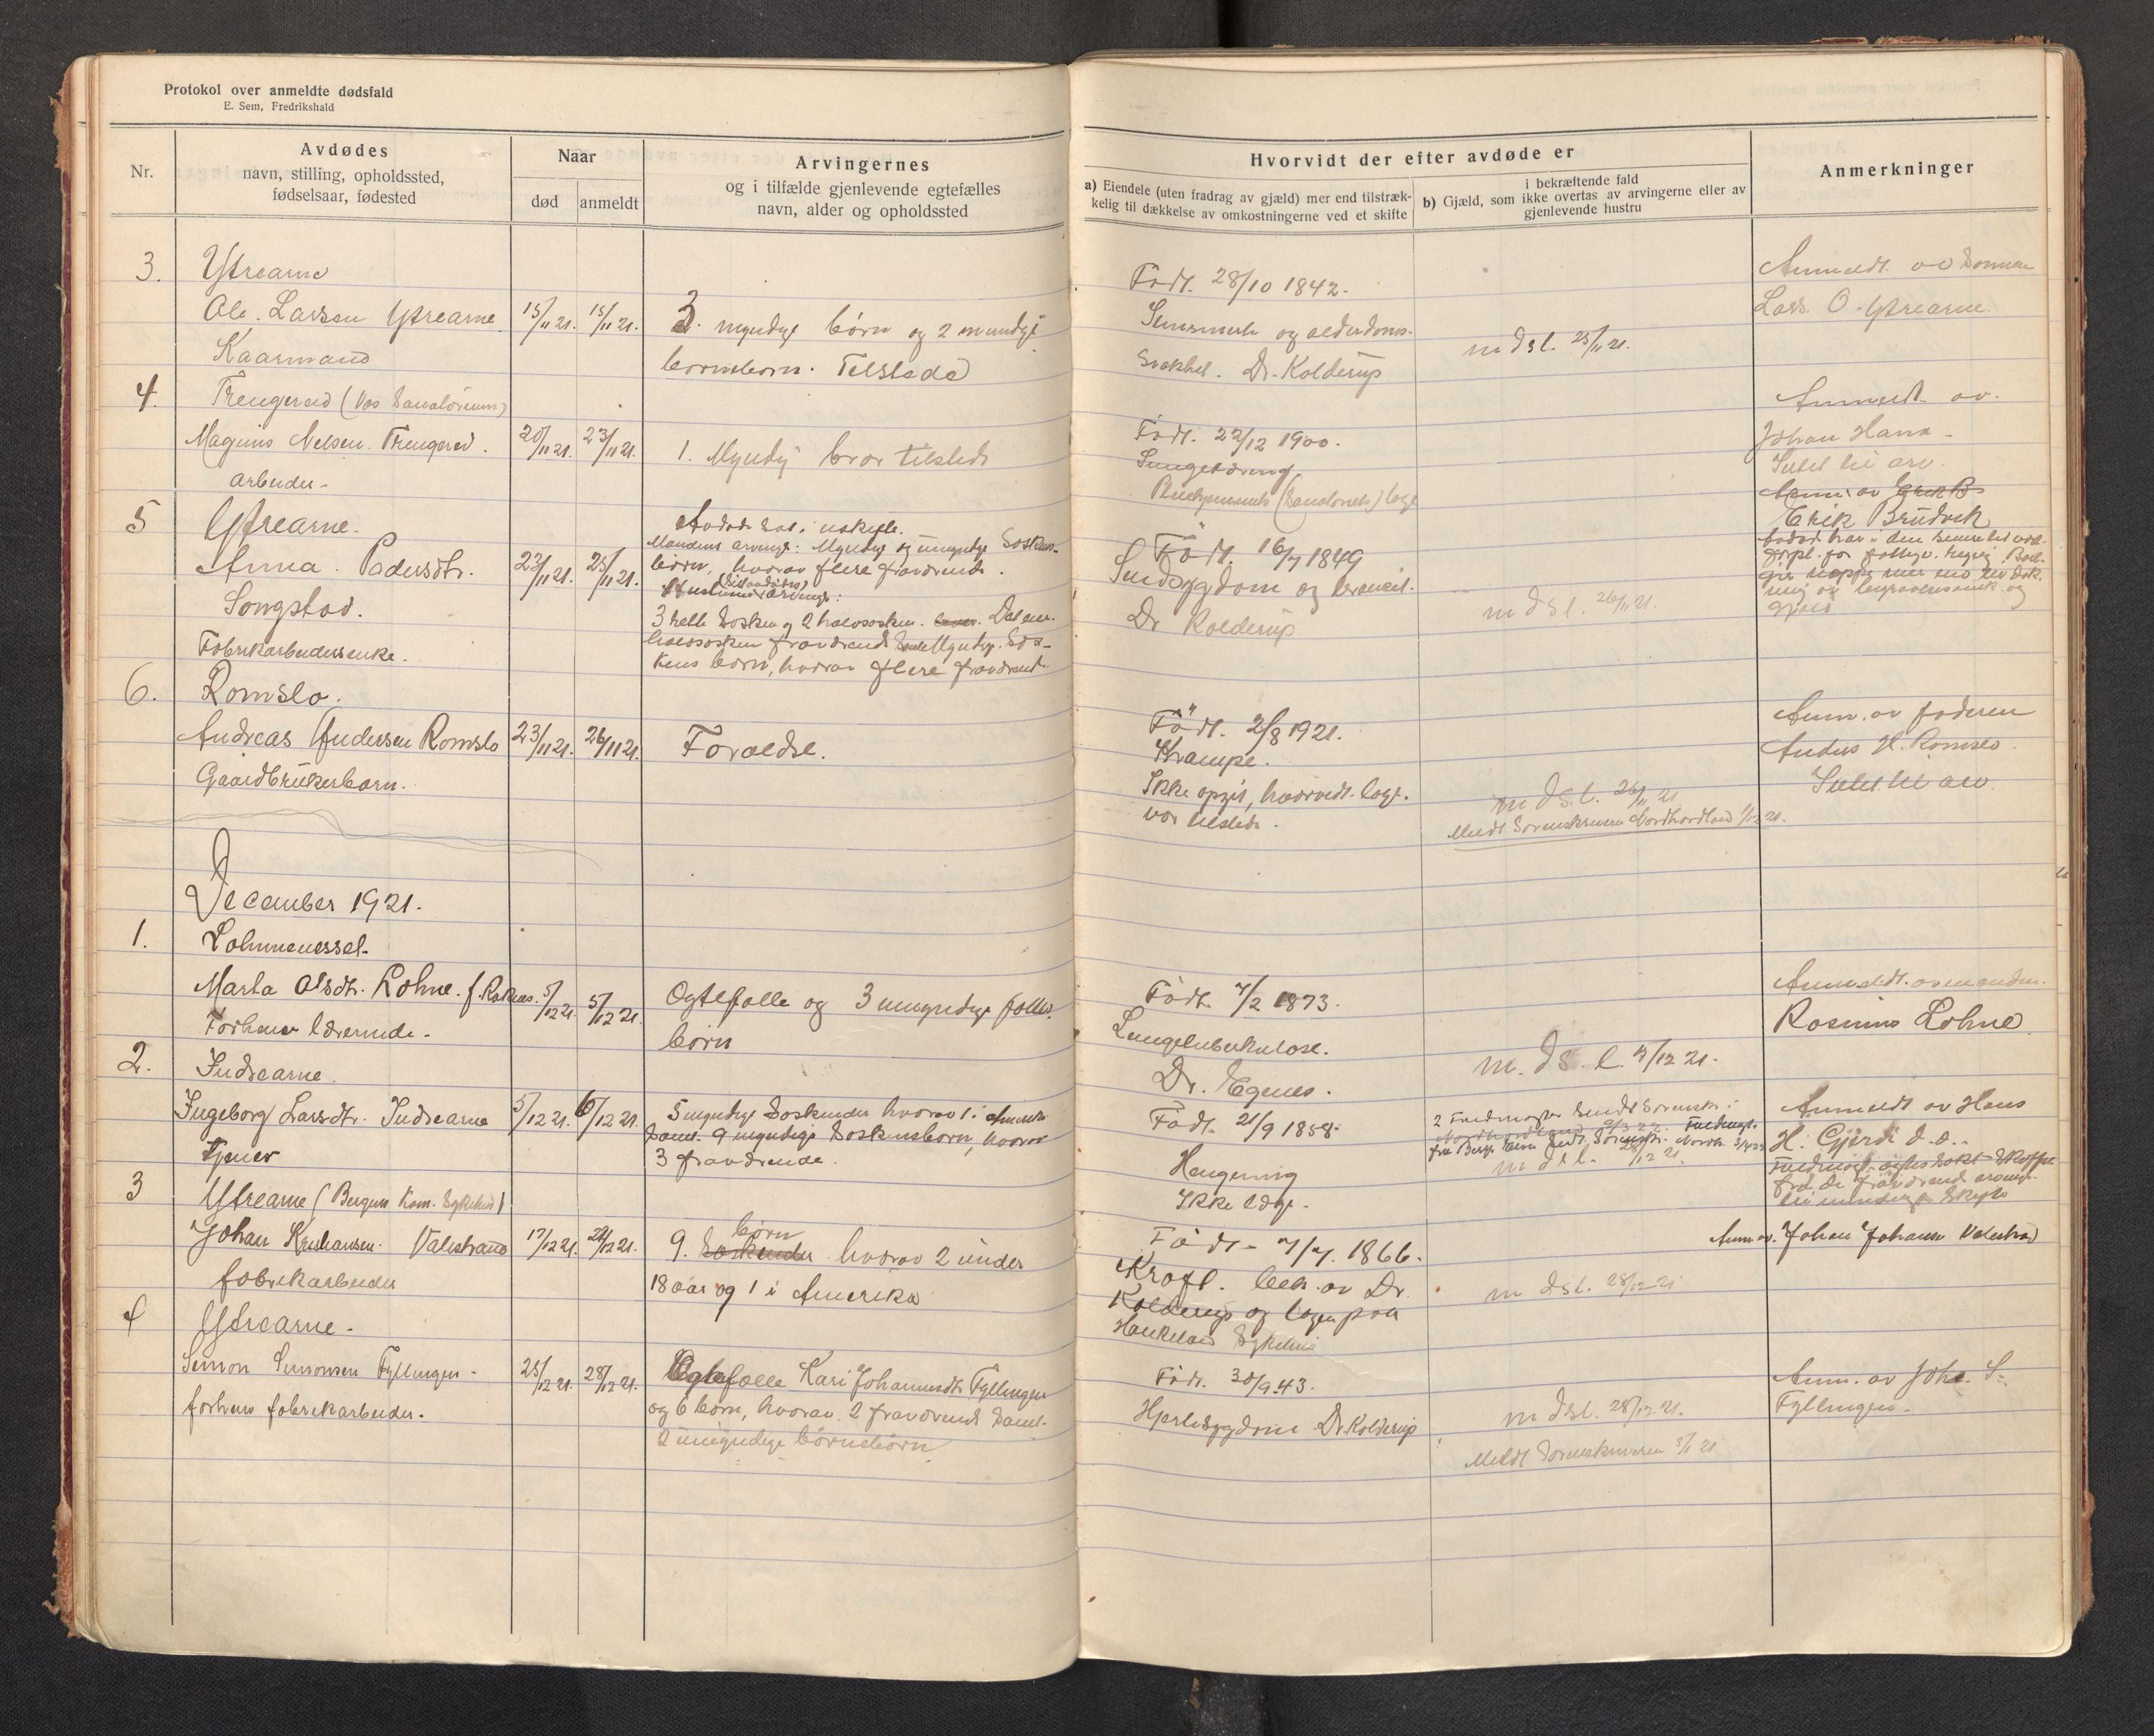 Protokol over anmeldte dødsfald
E. Sem, Fredrikshald
Nr.
Avdødes
navn, stilling, opholdssted,
fødselsaar, fødested
Naar
død
anmeldt
Arvingernes
og i tilfælde gjenlevende egtefælles
navn, alder og opholdssted
Hvorvidt der efter avdøde er
a) Eiendele (uten fradrag av gjæld) mer end tilstræk-
kelig til dækkelse av omkostningerne ved et skifte
i bekræftende fald
b) Gjæld, som ikke overtas av arvingerne eller av
gjenlevende hustru
Anmerkninger
3. Ytrearne
Ole Larsen Ytrearne 15/11 21. 15/11 21.
Kaarmand
3 myndige børn og 2 umyndige
børnebørn. Tilstede
Født. 28/10 1842.
og alderdoms-
svakhet. Dr. Kolderup
m dsl. 25/11 21.
Anmeldt av sønnen
Lars O. Ytrearne.
4. Trengereid (Vos Sanatorium)
Magnus Nelsen Trengereid. 20/11 21. 23/11 21.
arbeider.
1. Myndig bror tilstede
Født. 22/12 1900.
(Sanatoriets) læge
Anmeldt av
Johan Hana.
Intet til arv.
5 Ytrearne.
Anna Pedersdtr. 23/11 21. 25/11 21.
Songstad.
Fabrikarbeiderenke.
Avdøde sat i uskifte.
Mandens arvinger: Myndige og umyndige søsken-
børn, hvorav flere fraværende.
3 helsøsken og 2 halvsøsken. Det ene
halvsøsken fraværende samt myndige søs-
kens børn, hvorav flere fraværende.
Født. 16/7 1849
Sindsygdom og
Dr Kolderup
m dsl. 26/11 21.
Anm. av Erik B
Erik Brudvik
6. Romslo.
Andreas Andersen Romslo 23/11 21. 26/11 21.
Gaardbrukerbarn.
Forældre.
Født. 2/8 1921.
Krampe.
Ikke opgit, hvorvidt læge
var tilstede.
m dsl. 26/11 21
Meldt Sorenskriveren Nordhordland 1/12 21.
Anm. av faderen
Anders H. Romslo.
Intet til arv.
December 1921.
1. Lohnenessel.
Marta Olsdtr. Lohne f. Røknes. 5/12 21. 5/12 21.
Forhenv lærerinde.
Egtefælle og 3 umyndige fælles-
børn
Født 7/2 1873.
Lungetuberkulose.
Dr. Egenes.
m. ds. l. 7/12 21.
Anmeldt av manden
Rasmus Lohne.
2. Indrearne.
Ingeborg Larsdtr. Indrearne 5/12 21. 6/12 21.
Tjener
5 myndige søskende hvorav 1 i Amerika
samt 9 myndige søskensbørn, hvorav
3 fraværende.
Født. 21/9 1858.
Hængning
Ikke læge.
m dsl. 28/12 21.
Anmeldt av Hans
H. Gjerde d.e.
3 Ytrearne (Bergens Kom. Sykehus)
Johan Valestrand 17/12 21. 22/12 21.
fabrikarbeider
9. søskende børn hvorav 2 under
18 aar og 1 i Amerika
Født 7/7. 1866.
Kræft. beh. av Dr.
Kolderup og lægen paa
Haukeland Sykehus
m dsl. 28/12 21
Anm av. Johan Johansen Valestrand
4 Ytrearne.
Simon Simonsen Fyllingen 25/12 21. 28/12 21.
forhenv fabrikarbeider.
Egtefælle Kari Johannesdtr Fyllingen
og 6 børn, hvorav 2 fraværende samt
2 umyndige børnebørn
Født. 30/9 43.
Hjertesygdom Dr. Kolderup
m dsl. 28/12 21.
Meldt Sorenskriveren
Anm. av Johs. S.
Fyllingen.